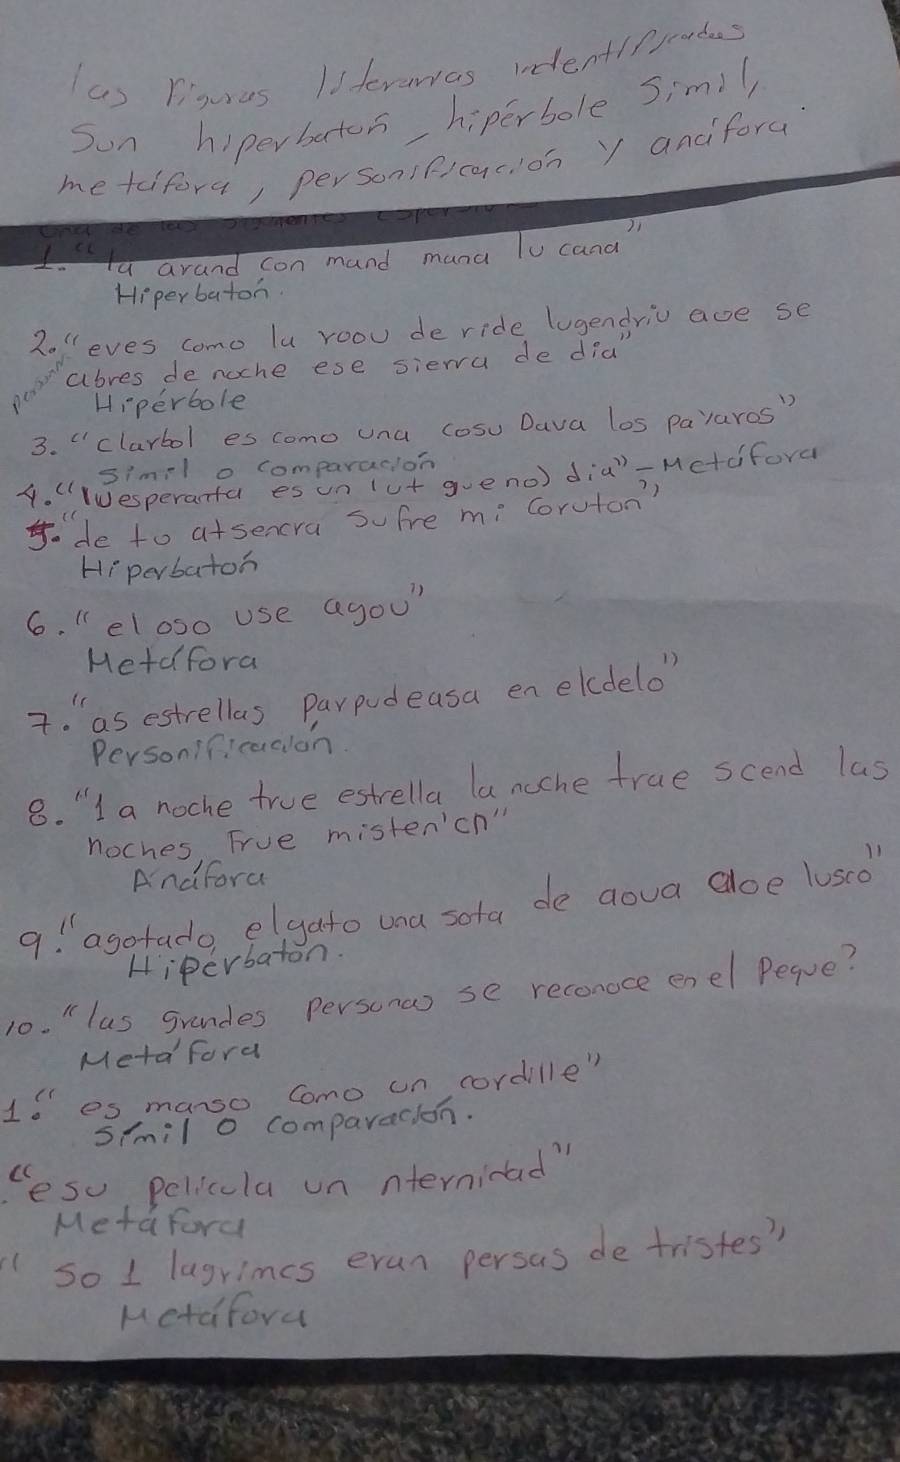 las figuras literarias indentifficades
Son hiperbatón, hipérbole Simil,
metáfora, personificación y anáfora.
una de las siguientes
1. "la arand con mand mana lu cana"
Hiperbaton.
2. "eves como la roou de ride lugendriu ave se
abres de noche ese sierra de dia"
Hipérbole
3. "clarbol es como una cosu Dava los payaros"
Simil o comparación
4. "lwesperanta es un lut guenos dia" - Metáfora
5. "de to atsencra sufre mi coruton"
Hiperbatón
6. "el oso use agou"
Metáfora
7. "as estrellas parpudeasa en elcdelo"
Personificación.
8. "1 a noche true estrella la noche trae scend las
noches, True misten'cn"
Anáfora
9. "agotado, elgato una sota de aoua aloe lusco"
Hipérbaton.
10. "las grandes personas se reconoce en el peque?
Metáfora
1. "es manso como un cordille"
Símil o comparación.
"esu pelicula un nternidad"
Metáfora
"so 1 lagrimes eran persas de tristes"
Metáfora